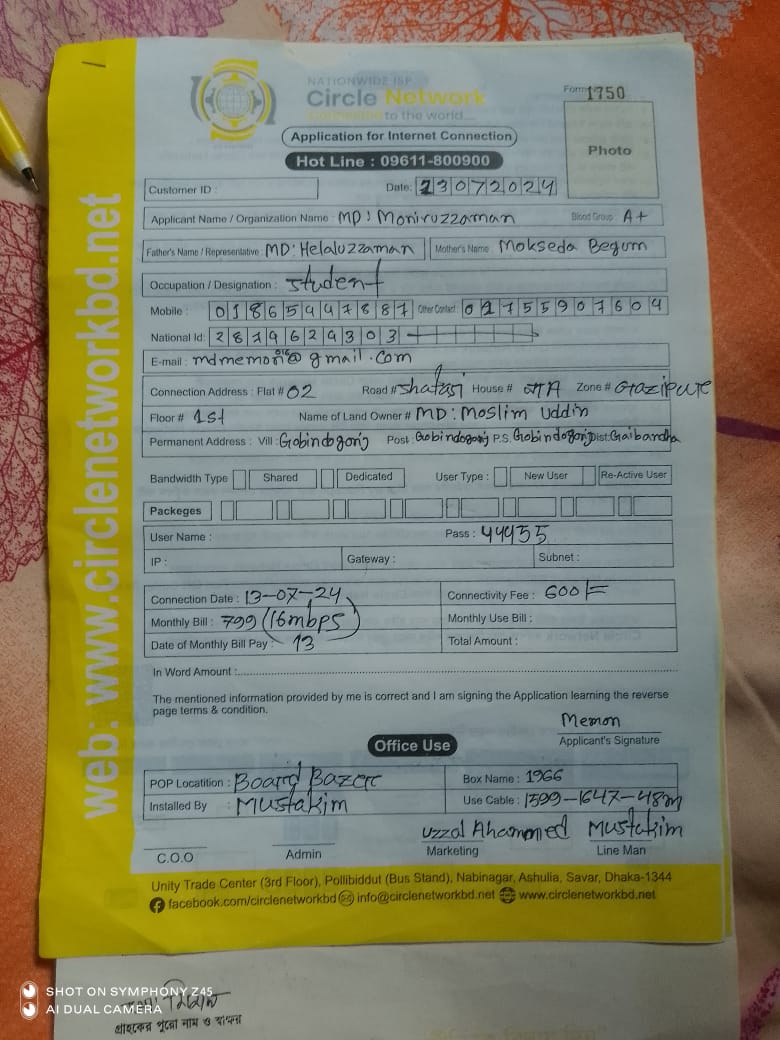 NATIONWIDE ISP
Circle Network
Connecting to the world...
Form 1750
Application for Internet Connection
Hot Line : 09611-800900
Photo
Customer ID :
Date: 13072024
Applicant Name / Organization Name : MD: Moniruzzaman Blood Group : A+
Father's Name / Representative : MD: Helaluzzaman Mother's Name : Mokseda Begum
Occupation / Designation : Student
Mobile : 01865447887 Other Contact: 01755907604
National Id: 2879624303
E-mail : @gmail.com
Connection Address : Flat # 02 Road # House # Zone #
Floor # 1st Name of Land Owner # MD: Moslim Uddin
Permanent Address : Vill : Gobindogonj Post : Gobindogonj P.S. Gobindogonj Dist: Gaibandha
Bandwidth Type Shared Dedicated User Type : New User Re-Active User
Packeges
User Name : Pass : 44455
IP : Gateway : Subnet :
Connection Date : 13-07-24 Connectivity Fee : 600/=
Monthly Bill : 799 (16mbps) Monthly Use Bill :
Date of Monthly Bill Pay : 13 Total Amount :
In Word Amount :
The mentioned information provided by me is correct and I am signing the Application learning the reverse
page terms & condition.
Memon
Applicant's Signature
Office Use
POP Locatition : Board Bazer Box Name : 1966
Installed By : Mustakim Use Cable : 1599-1647-48m
Uzzal Ahammed Mustakim
C.O.O Admin Marketing Line Man
Unity Trade Center (3rd Floor), Pollibiddut (Bus Stand), Nabinagar, Ashulia, Savar, Dhaka-1344
facebook.com/circlenetworkbd info@circlenetworkbd.net www.circlenetworkbd.net
web: www.circlenetworkbd.net
গ্রাহকের পুরো নাম ও স্বাক্ষর
SHOT ON SYMPHONY Z45
AI DUAL CAMERA